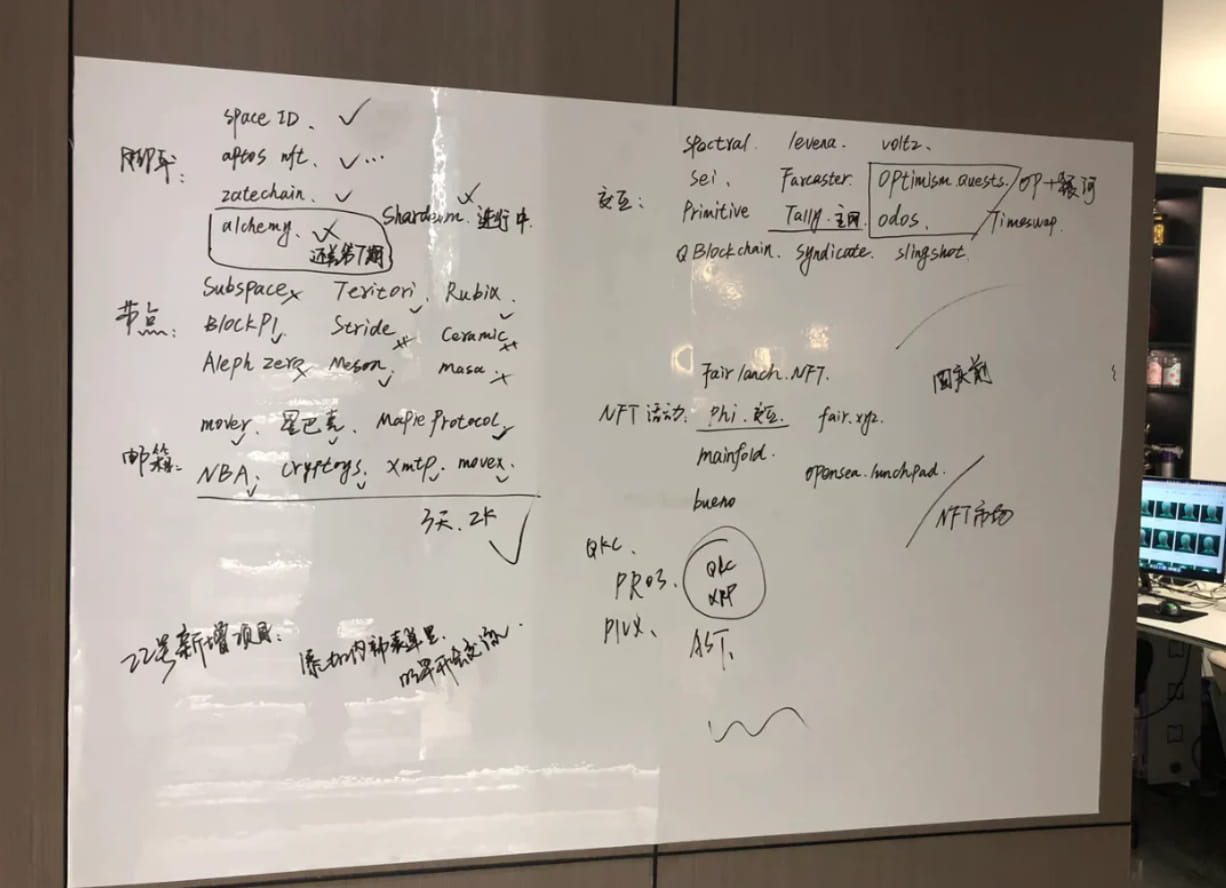 space ID、
脚本:
aptos nft、...
zatechain、
Shardeum、进行中
alchemy、
还差第7期
节点:
Subspace Teritori、Rubix、
BlockPI、Stride Ceramic
Aleph zero Meson、masa、
邮箱:
mover、星巴克、Maple Protocol、
NBA、Cryptoys、xmtp、movex、
3天、2K
22号新增项目:
添加内部表单里、
明早开会交流、
交互:
Spectral、levena、voltz、
Sei、Farcaster、Optimism.quests、OP+银河
Primitive Tally、主网、odos、Timeswap、
Q Blockchain、Syndicate、slingshot、
国庆前
NFT活动:
Fair lanch.NFT、
Phi、交互、fair.xyz、
mainfold、
opensea.lunchpad、
bueno
NFT市场
QKC、
PROS、
QKC
XRP
PIVX、
AST、